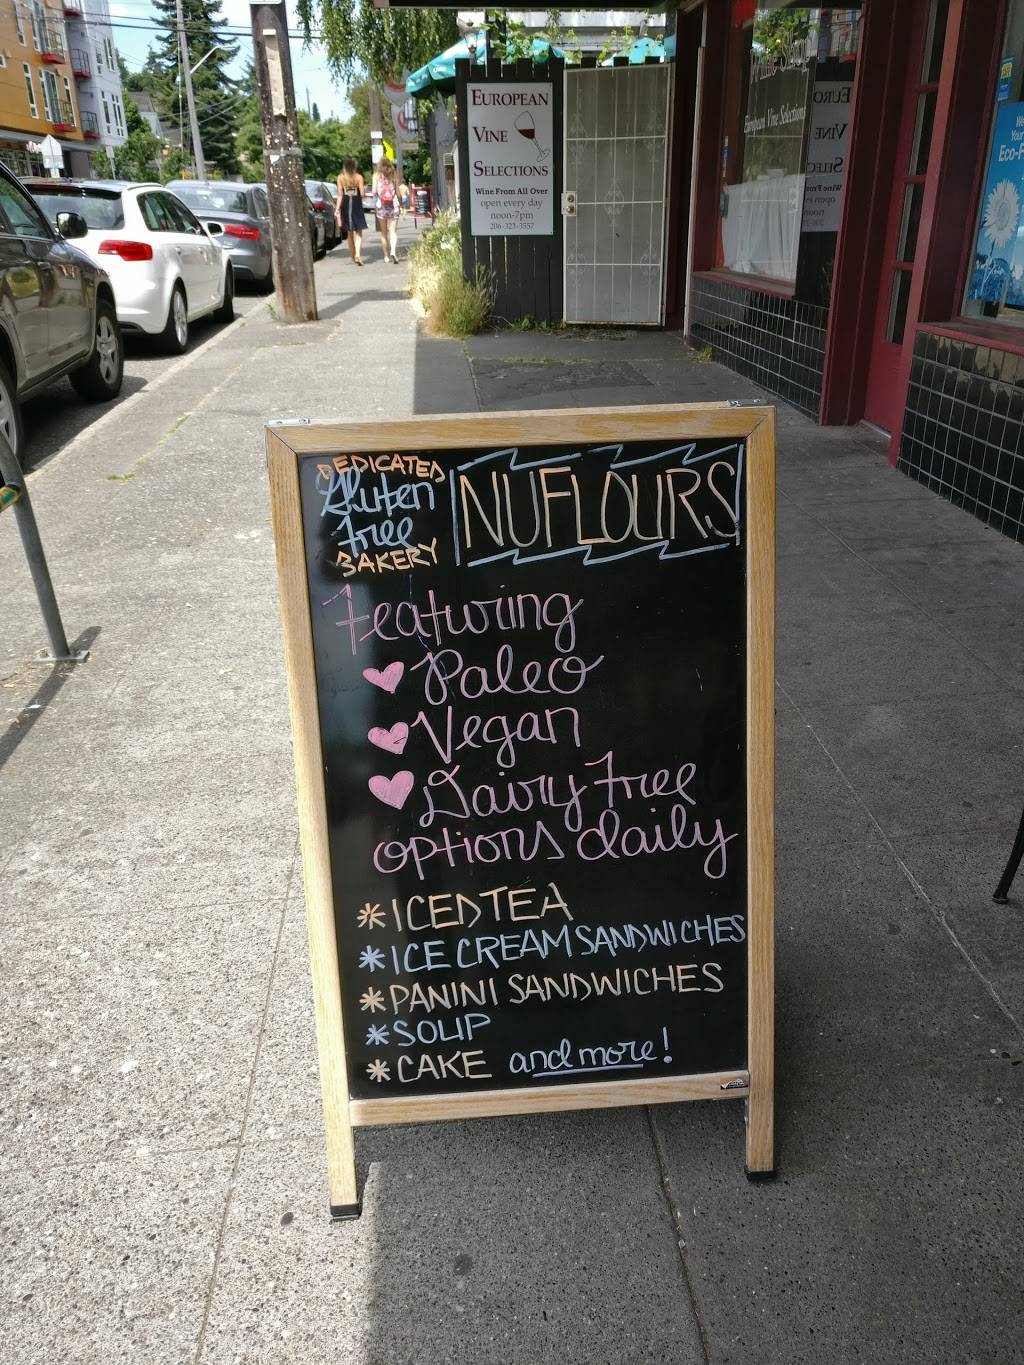 DEDICATED
Gluten
free
BAKERY
NUFLOURS
Featuring
Paleo
Vegan
Dairy free
options daily
*ICED TEA
*ICE CREAM SANDWICHES
*PANINI SANDWICHES
*SOUP
*CAKE and more!
EUROPEAN
VINE
SELECTIONS
Wine From All Over
open every day
noon-7pm
206-323-3557
Wine Shop
European Vine Selections
EURO
VINE
SELEC
Eco-F